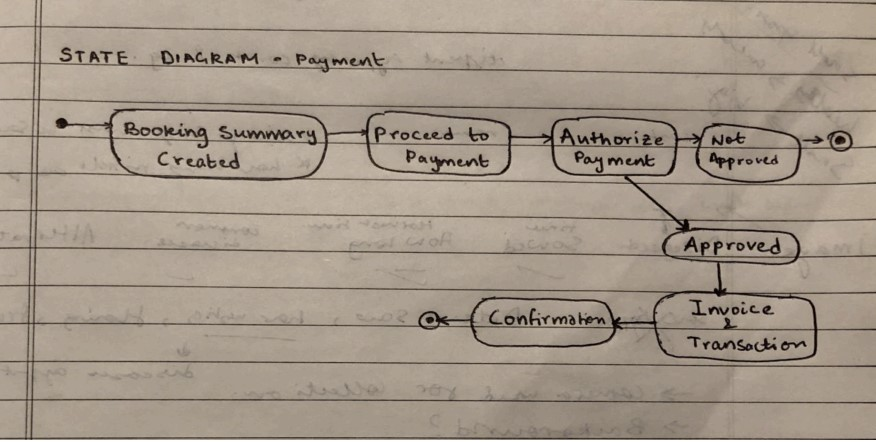 STATE DIAGRAM - Payment
Booking Summary
Created
Proceed to
Payment
Authorize
Payment
Not
Approved
Approved
Invoice
&
Transaction
Confirmation